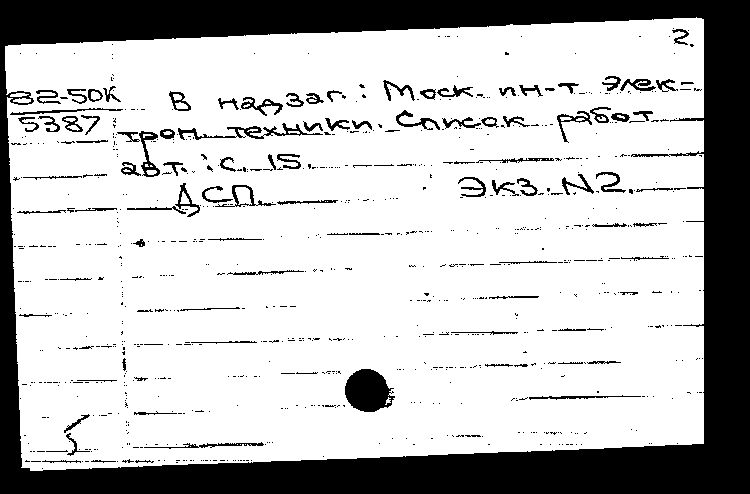 2.
82-50К
5387
В надзаг.: Моск. ин-т элек-
трон. техники. Список работ
авт.: с. 15.
ДСП. Экз. N2.
5